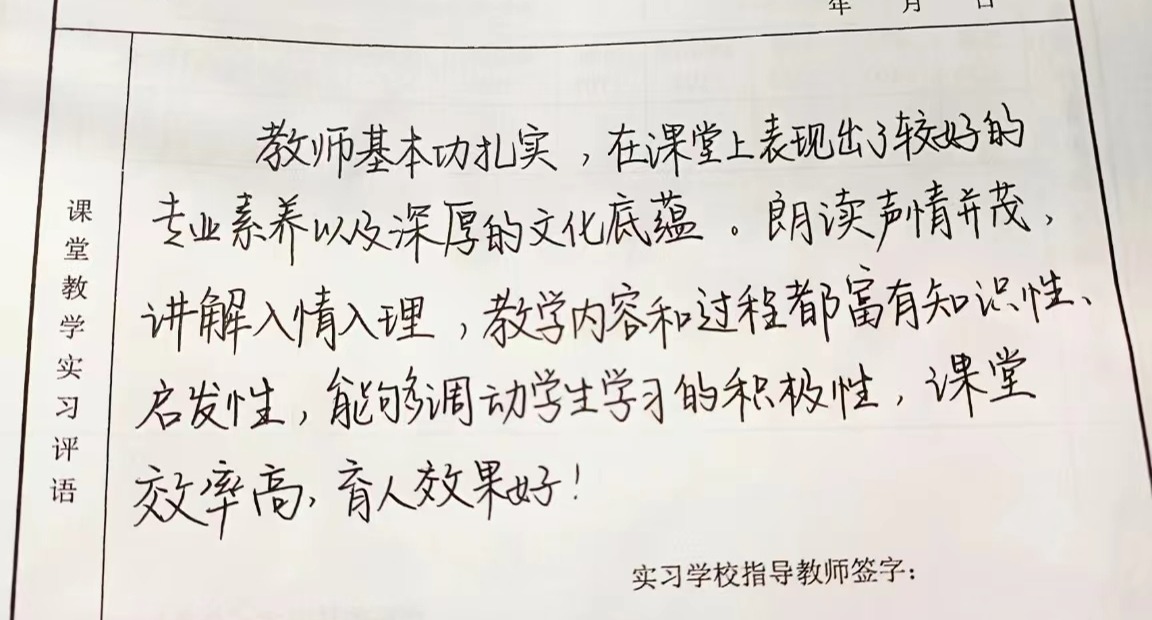 年 月 日
课堂教学实习评语
教师基本功扎实，在课堂上表现出了较好的
专业素养以及深厚的文化底蕴。朗读声情并茂，
讲解入情入理，教学内容和过程都富有知识性、
启发性，能够调动学生学习的积极性，课堂
效率高，育人效果好！
实习学校指导教师签字：